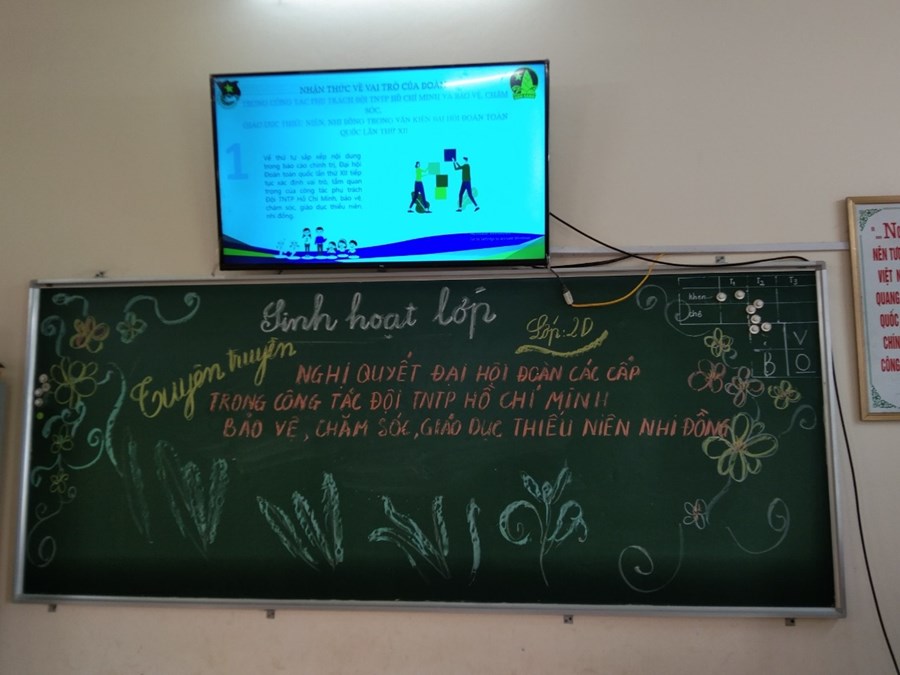 NHẬN THỨC VỀ VAI TRÒ CỦA ĐOÀN
TRONG CÔNG TÁC PHỤ TRÁCH ĐỘI TNTP HỒ CHÍ MINH VÀ BẢO VỆ, CHĂM
SÓC,
GIÁO DỤC THIẾU NIÊN, NHI ĐỒNG TRONG VĂN KIỆN ĐẠI HỘI ĐOÀN TOÀN
QUỐC LẦN THỨ XII
1
Về thứ tự sắp xếp nội dung
trong báo cáo chính trị, Đại hội
Đoàn toàn quốc lần thứ XII tiếp
tục xác định vai trò, tầm quan
trọng của công tác phụ trách
Đội TNTP Hồ Chí Minh, bảo vệ
chăm sóc, giáo dục thiếu niên,
nhi đồng.
Sinh hoạt lớp
Lớp: 2D
Tuyên truyền
NGHỊ QUYẾT ĐẠI HỘI ĐOÀN CÁC CẤP
TRONG CÔNG TÁC ĐỘI TNTP HỒ CHÍ MINH
BẢO VỆ, CHĂM SÓC, GIÁO DỤC THIẾU NIÊN NHI ĐỒNG
T1 T2 T3
Khen
Chê
V
B O
NÊN TƯ
VIỆT N
QUANG
QUỐC
CHÍN
CÔNG